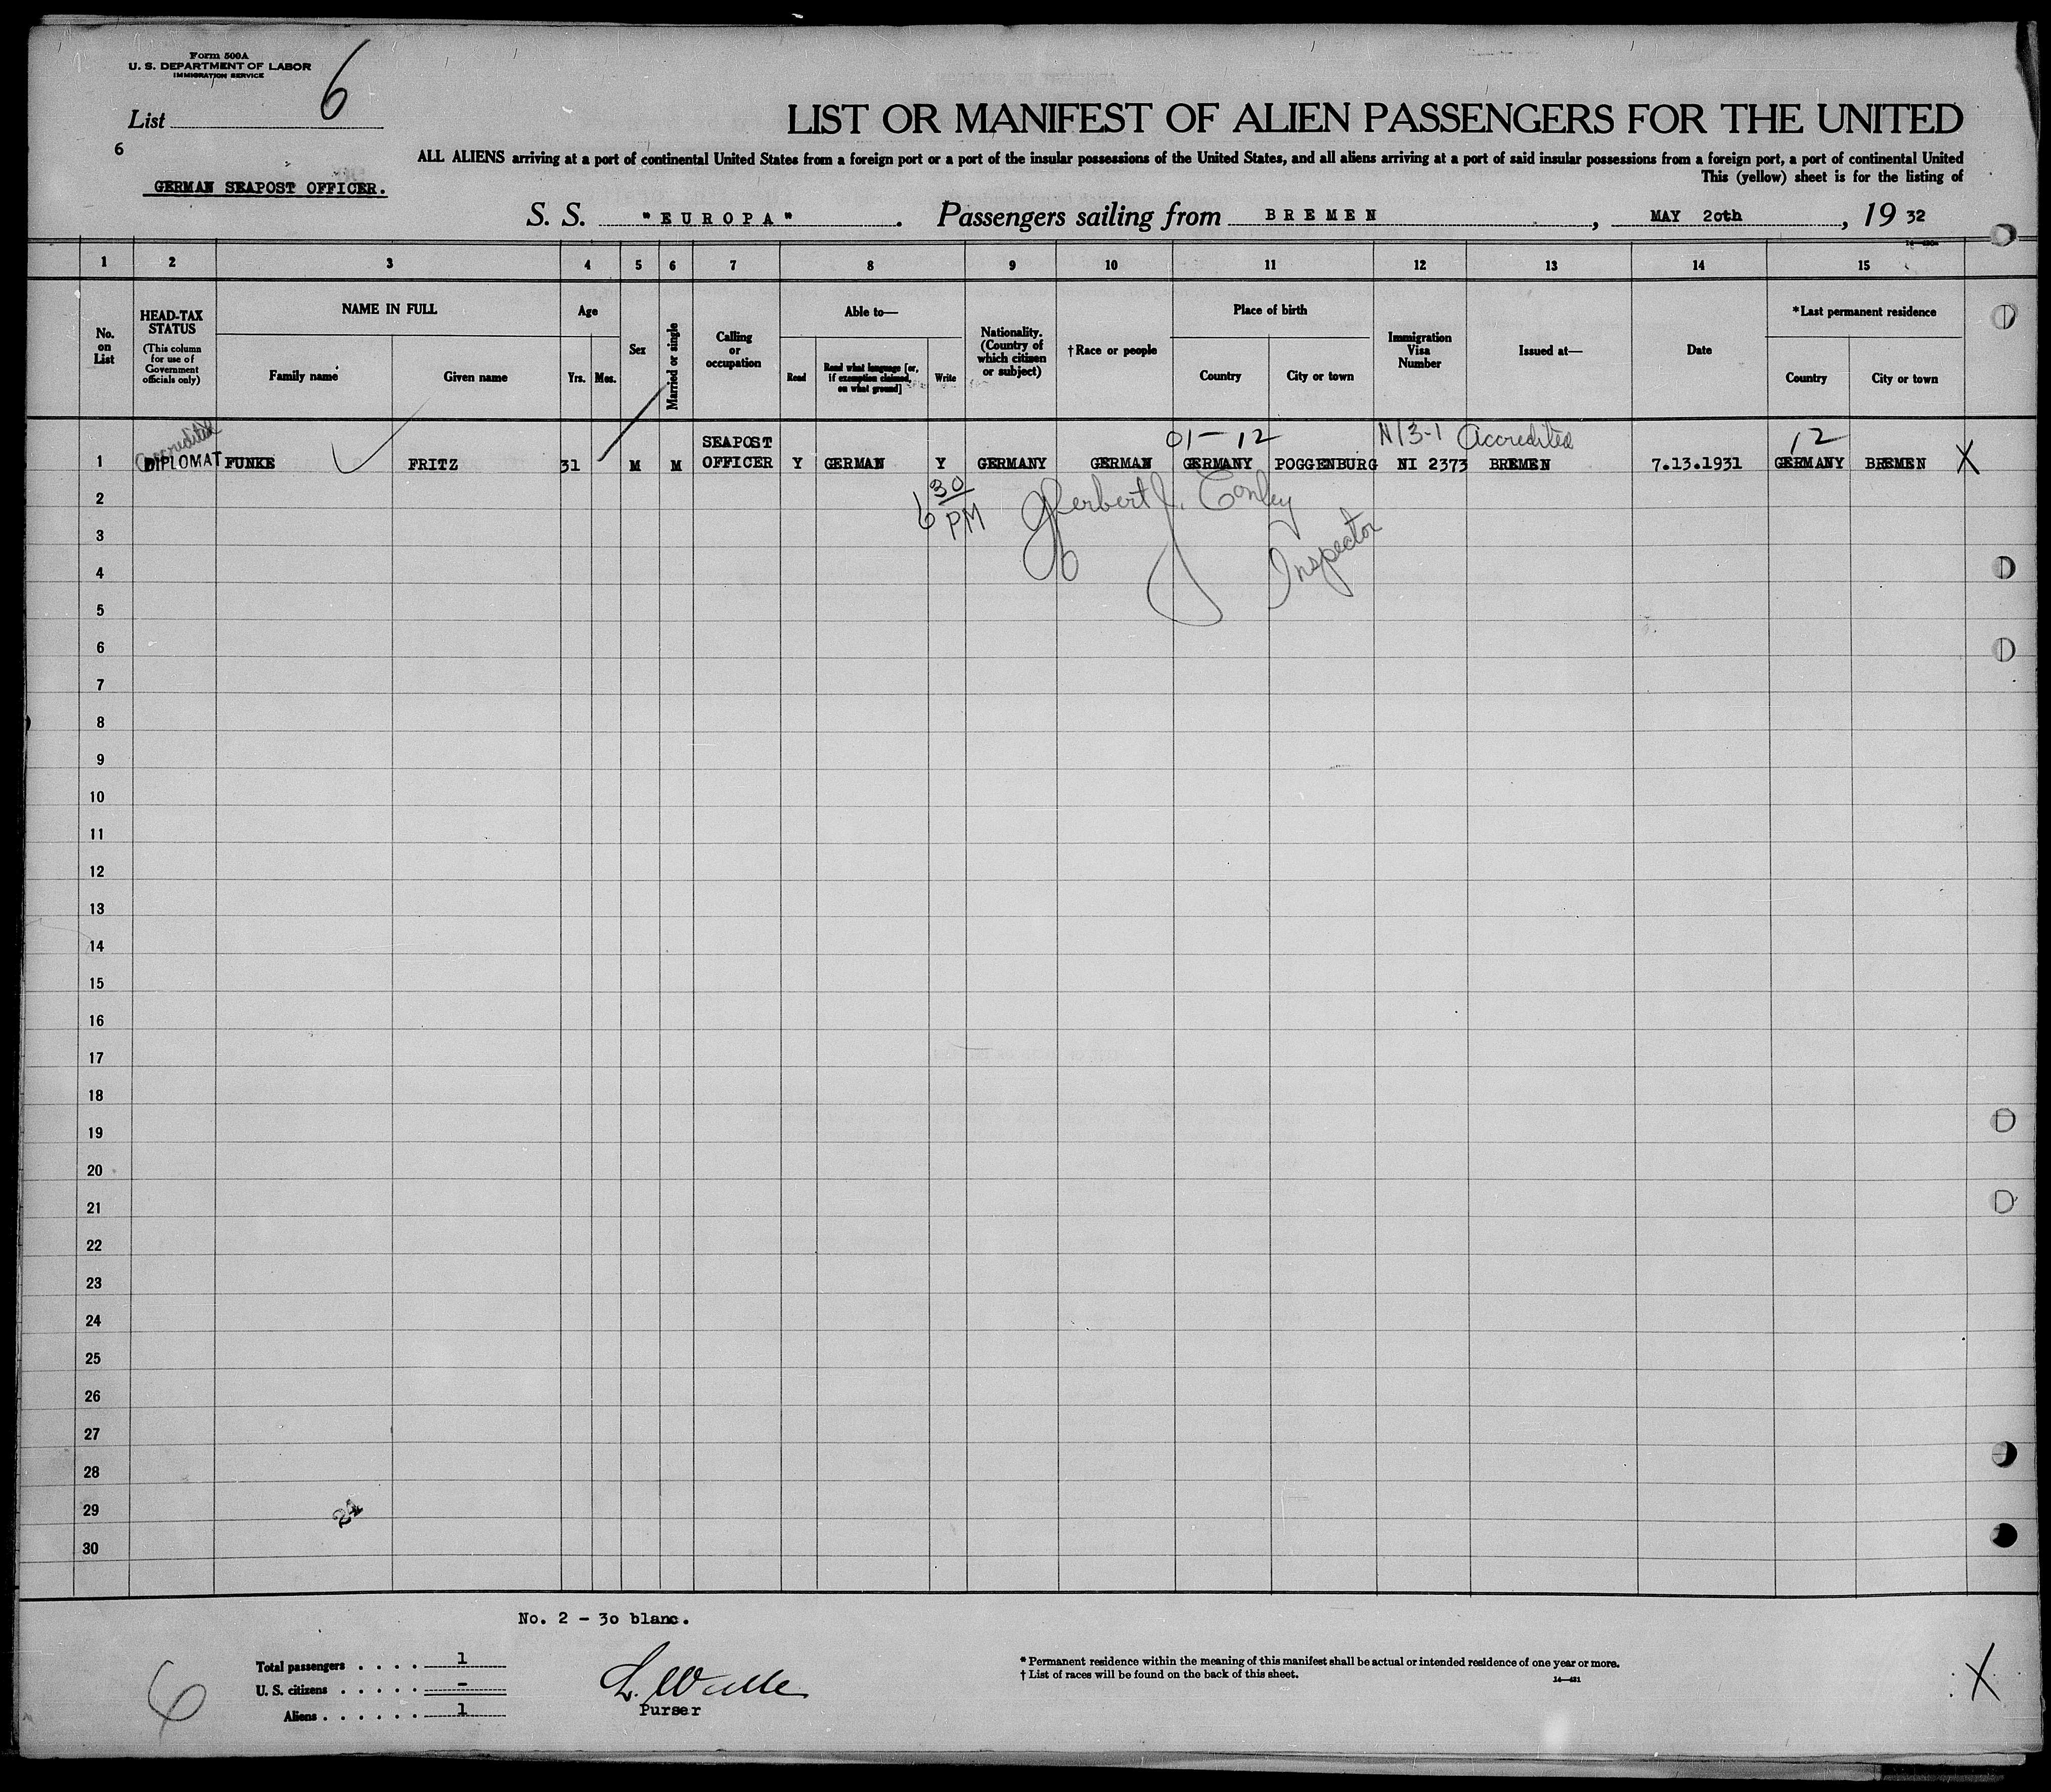 Form 500A
U. S. DEPARTMENT OF LABOR
IMMIGRATION SERVICE
List 6
6
GERMAN SEAPOST OFFICER.
LIST OR MANIFEST OF ALIEN PASSENGERS FOR THE UNITED
ALL ALIENS arriving at a port of continental United States from a foreign port or a port of the insular possessions of the United States, and all aliens arriving at a port of said insular possessions from a foreign port, a port of continental United
This (yellow) sheet is for the listing of
S. S. "EUROPA". Passengers sailing from BREMEN, MAY 20th, 19 32
1 2 3 4 5 6 7 8 9 10 11 12 13 14 15
No. on List
HEAD-TAX STATUS (This column for use of Government officials only)
NAME IN FULL
Family name
Given name
Age
Yrs. Mos.
Sex
Married or single
Calling or occupation
Able to—
Read
Read what language [or, if exemption claimed, on what ground]
Write
Nationality. (Country of which citizen or subject)
†Race or people
Place of birth
Country
City or town
Immigration Visa Number
Issued at—
Date
*Last permanent residence
Country
City or town
Accredited SEAPOST 01-12 N13-1 Accredited 12
1 DIPLOMAT FUNKE FRITZ 31 M M OFFICER Y GERMAN Y GERMANY GERMAN GERMANY POGGENBURG NI 2373 BREMEN 7.13.1931 GERMANY BREMEN X
6 30 PM
Herbert J. Conley
Inspector
2
3
4
5
6
7
8
9
10
11
12
13
14
15
16
17
18
19
20
21
22
23
24
25
26
27
28
29
30
No. 2 - 30 blanc.
Total passengers . . . . 1
U. S. citizens . . . . . -
Aliens . . . . . . 1
6
Purser
* Permanent residence within the meaning of this manifest shall be actual or intended residence of one year or more.
† List of races will be found on the back of this sheet.
X